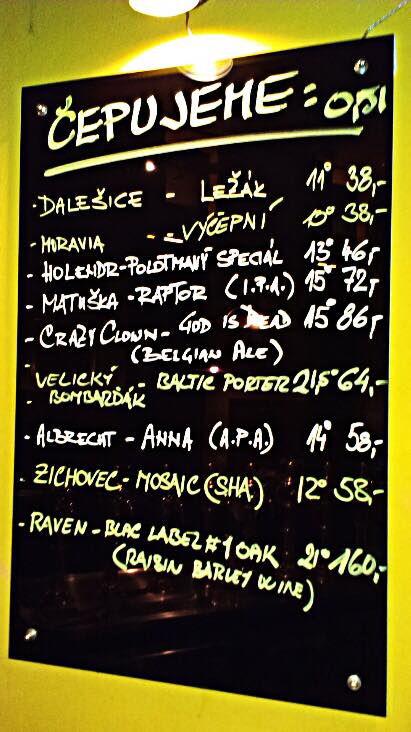 ČEPUJEME: 0,5l
- DALEŠICE - LEŽÁK 11° 38,-
- MORAVIA - VÝČEPNÍ 10° 38,-
- HOLENDR - POLOTMAVÝ SPECIÁL 13° 46,-
- MATUŠKA - RAPTOR (I.P.A.) 15° 72,-
- CRAZY CLOWN - GOD IS DEAD 15° 86,-
(BELGIAN ALE)
- VELICKÝ - BALTIC PORTER 21,5° 64,-
BOMBARĎÁK
- ALBRECHT - ANNA (A.P.A.) 14° 58,-
- ZICHOVEC - MOSAIC (SHA) 12° 58,-
- RAVEN - BLAC LABEL #1 OAK 21° 160,-
(RAISIN BARLEY WINE)